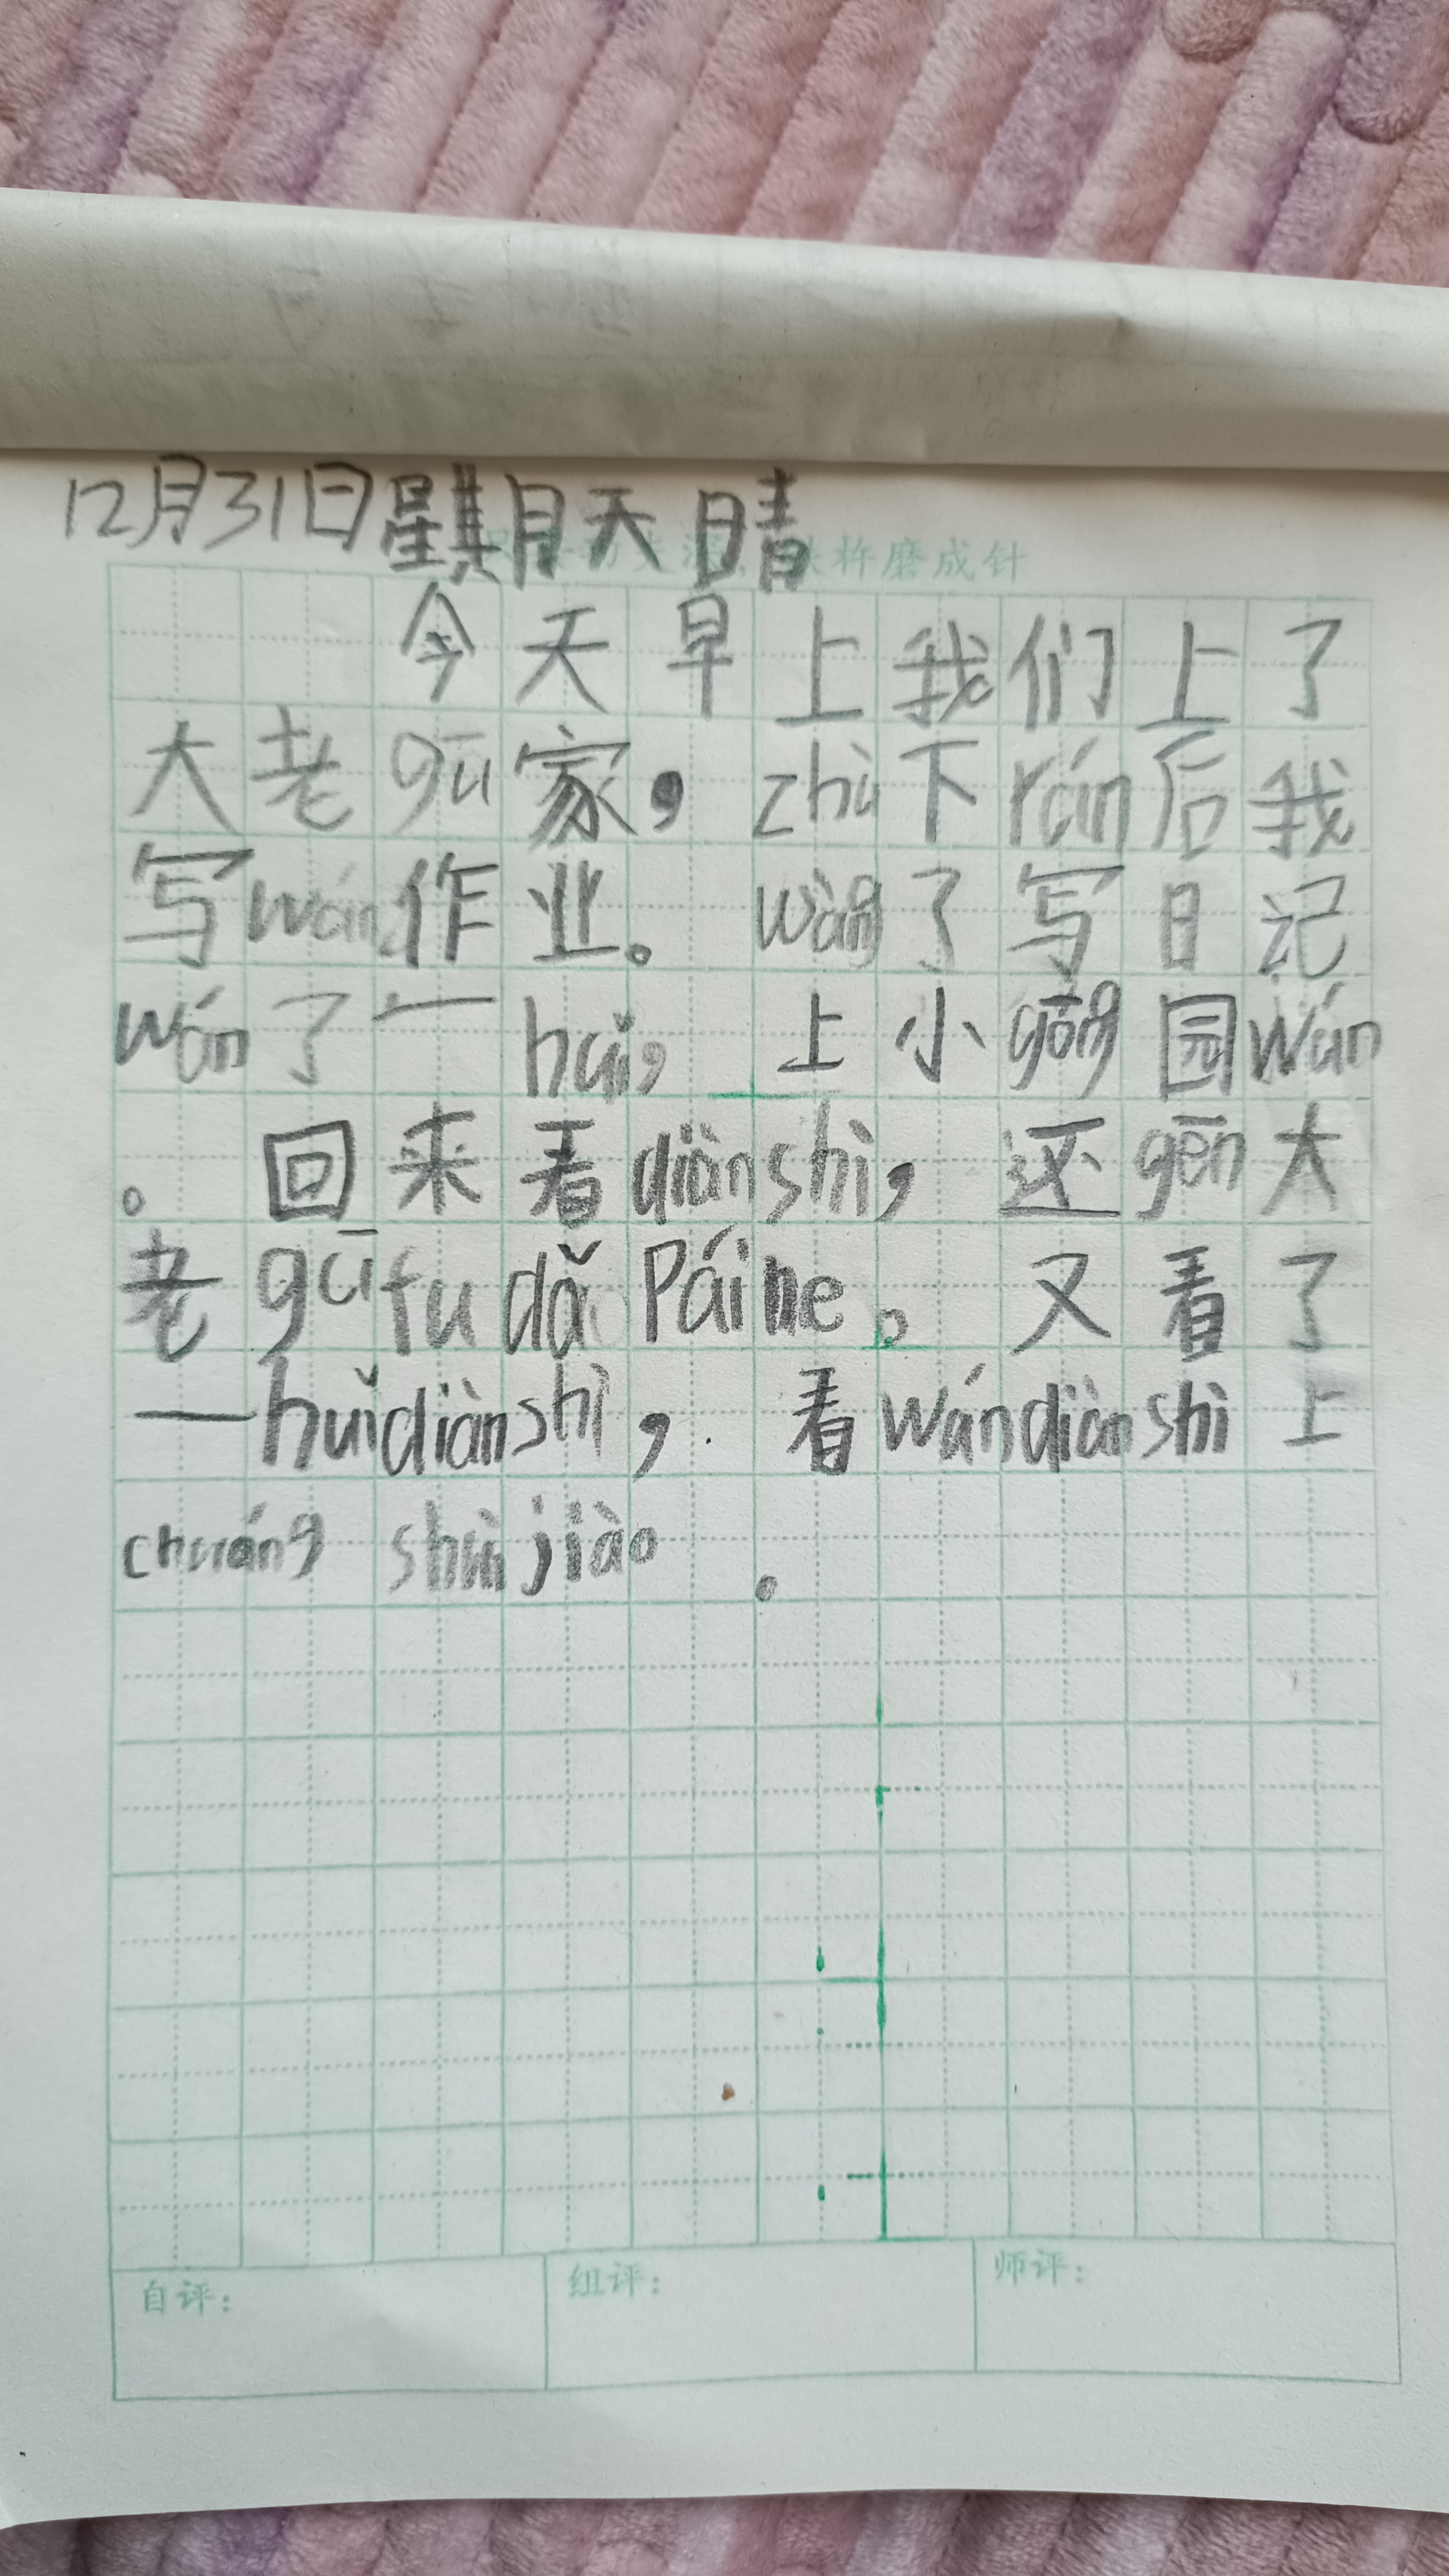 12月31日星期天 晴
铁杵磨成针
今天早上我们上了
大老gū家，zhù下rán后我
写wán作业。wàng了写日记
wán了一huǐ，上小gōng园wán
。回来看diànshì，还gēn大
老gūfu dǎ Pái ne。又看了
一huǐdiànshì，看wándiànshì上
chuáng shuìjiào。
自评：
组评：
师评：